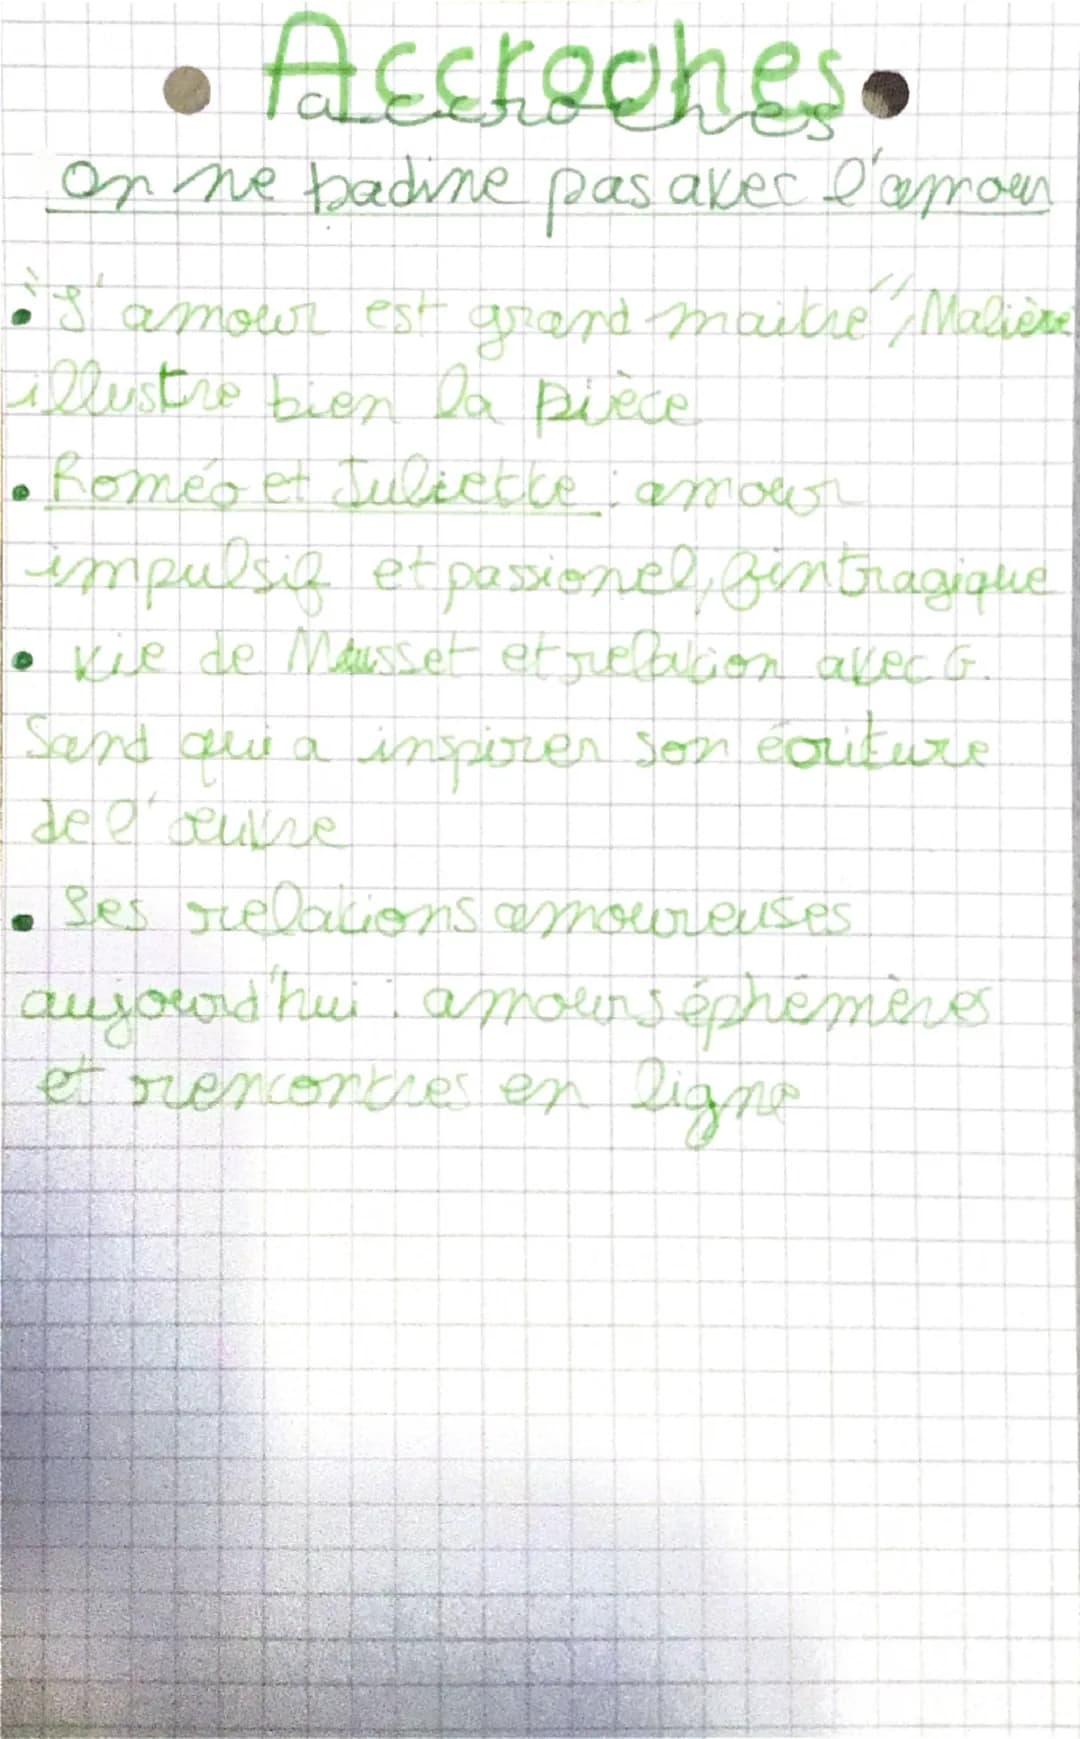 Accroches
accroches
on ne badine pas avec l'amour
• "L'amour est grand maitre", Molière
illustre bien la pièce
• Roméo et Juliette : amour
impulsif et passionel, fin tragique
• vie de Musset et relation avec G.
Sand qui a inspirer son écriture
de l'œuvre
• Ses relations amoureuses
aujourd'hui : amours éphémères
et rencontres en ligne